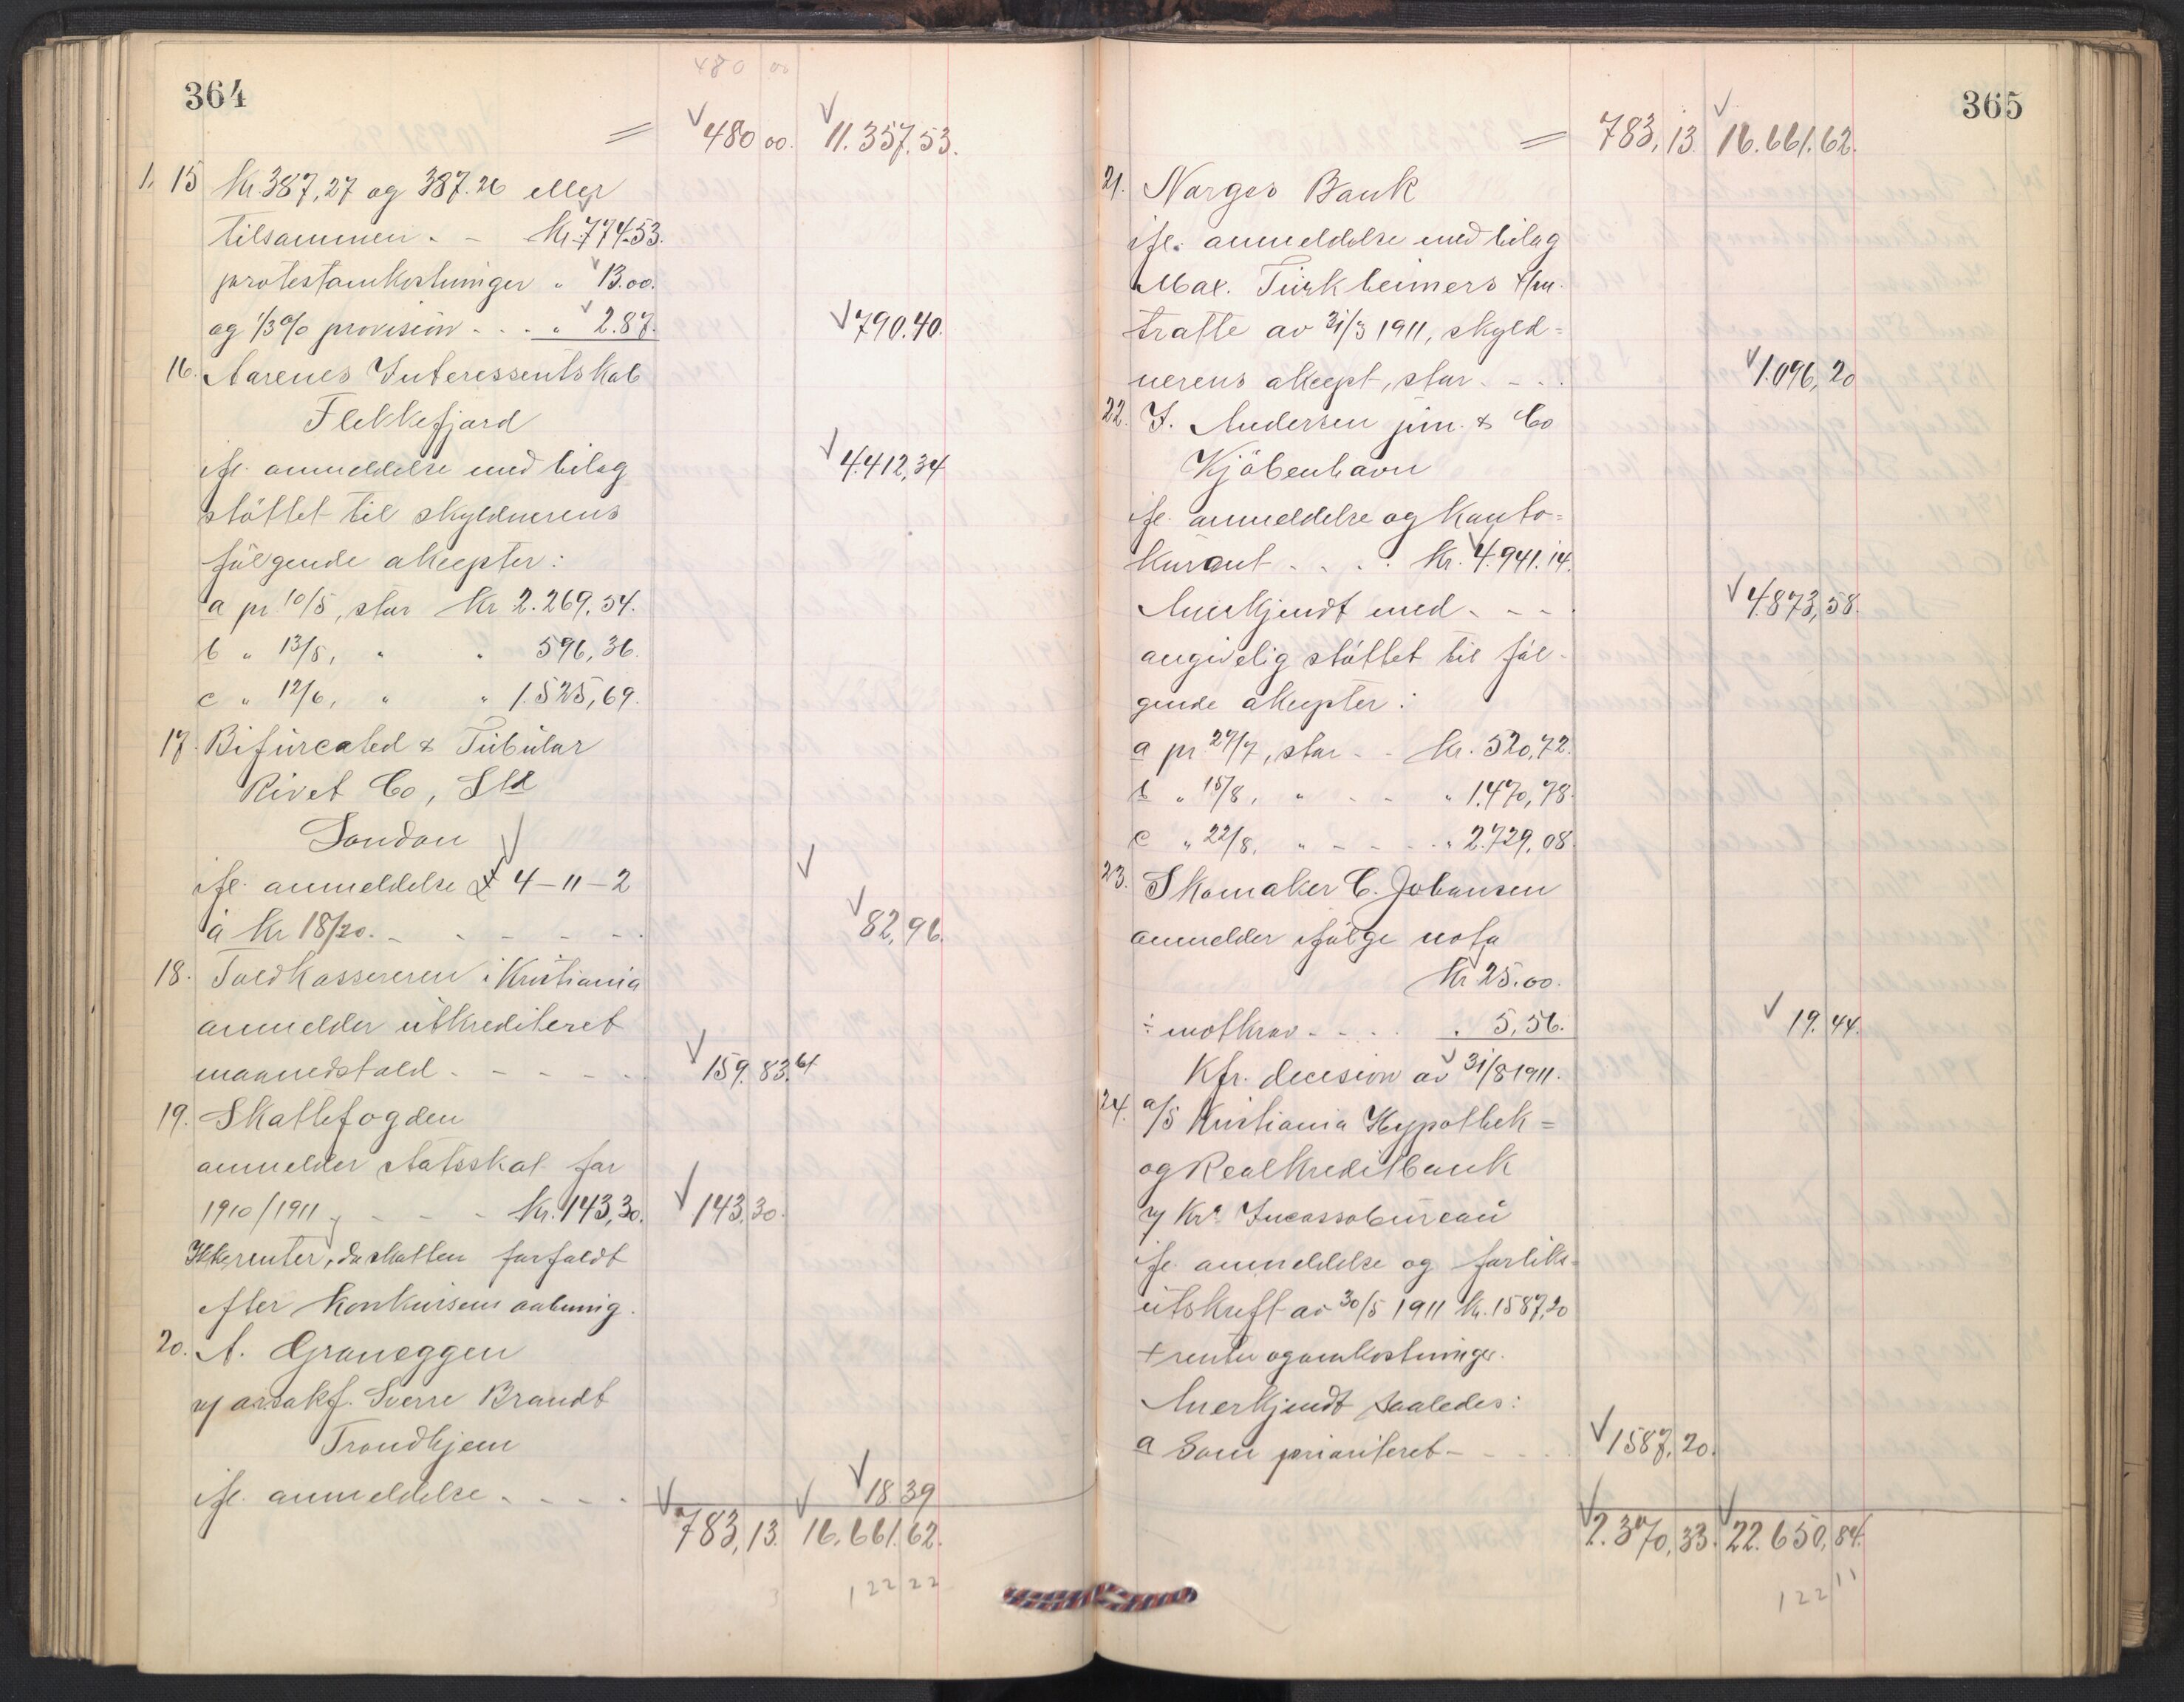 480 00
364
= 480 00. 11.357.53.
1, 15 Kr. 387,27 og 387.26 eller
tilsammen - - Kr. 774.53.
protestomkostninger " 13.00.
og 1/3 % provision - - - " 2.87. 790.40.
16. Aarenes Interessentskab
Flekkefjord
ifl. anmeldelse med bilag 4.412,34
støttet til skyldnerens
følgende aksepter:
a pr 10/5, stor Kr 2.269.54.
b " 13/5, " " 596,36.
c " 12/6, " " 1.525,69.
17. Bifurcated & Tubular
Rivet Co, Ltd
London
ifl. anmeldelse £ 4-11-2
à Kr 18/20. - - - - - 82,96.
18. Toldkassereren i Kristiania
anmelder utkrediteret
maanedstold - - - - - 159.83.
19. Skattefogden
anmelder statsskat for
1910/1911 - - - Kr. 143,30. 143,30.
Ikke renter, da skatten forfaldt
efter konkursens aabning.
20. A. Graneggen
v/ o.r.sakf. Sverre Brandt
Trondhjem
ifl. anmeldelse - - - - 18 39
783,13. 16.661.62.
1 22 22
365
= 783,13. 16.661.62.
21. Norges Bank
ifl. anmeldelse med bilag
Max. Türkheimers
tratte av 31/3 1911, skyld=
nerens aksept, stor - - - . 1.096,20
22. J. Andersen jun. & Co
Kjöbenhavn
ifl. anmeldelse og konto=
kurant - - - . Kr. 4.941.14.
Anerkjendt med - - - 4.873,58.
angivelig støttet til føl-
gende aksepter:
a pr. 27/7, stor - - Kr. 520,72.
b " 15/8, " - - " 1.470,78.
c " 22/8, " - - - " 2.729,08.
23. Skomaker C. Johansen
anmelder ifølge nota
Kr 25.00.
÷ motkrav - - - . " 5,56. 19.44.
Kfr. decision av 31/8 1911.
24. a/s Kristiania Hypothek=
og Realkreditbank
v/ Kra Incassobureau
ifl. anmeldelse og forliks=
utskrift av 30/5 1911 Kr. 1587,20
+ renter og omkostninger.
Anerkjendt saaledes:
a Som prioriteret - - - . 1587,20.
2.370,33. 22.650,84.
122 11